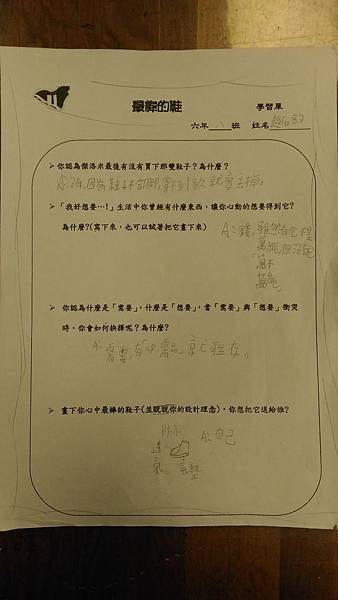 最棒的鞋
學習單
六年 八 班 姓名
➢ 你認為傑洛米最後有沒有買下那雙鞋子?為什麼?
➢ 「我好想要…!」生活中你曾經有什麼東西,讓你心動的想要得到它?
為什麼?(寫下來,也可以試著把它畫下來)
A:錢,雖然
萬能,但沒
萬不
萬能
➢ 你認為什麼是「需要」,什麼是「想要」,當「需要」與「想要」衝突
時,你會如何抉擇呢?為什麼?
➢ 畫下你心中最棒的鞋子(並說說你的設計理念),你想把它送給誰?
防水
A:自己
透
氣
氣墊